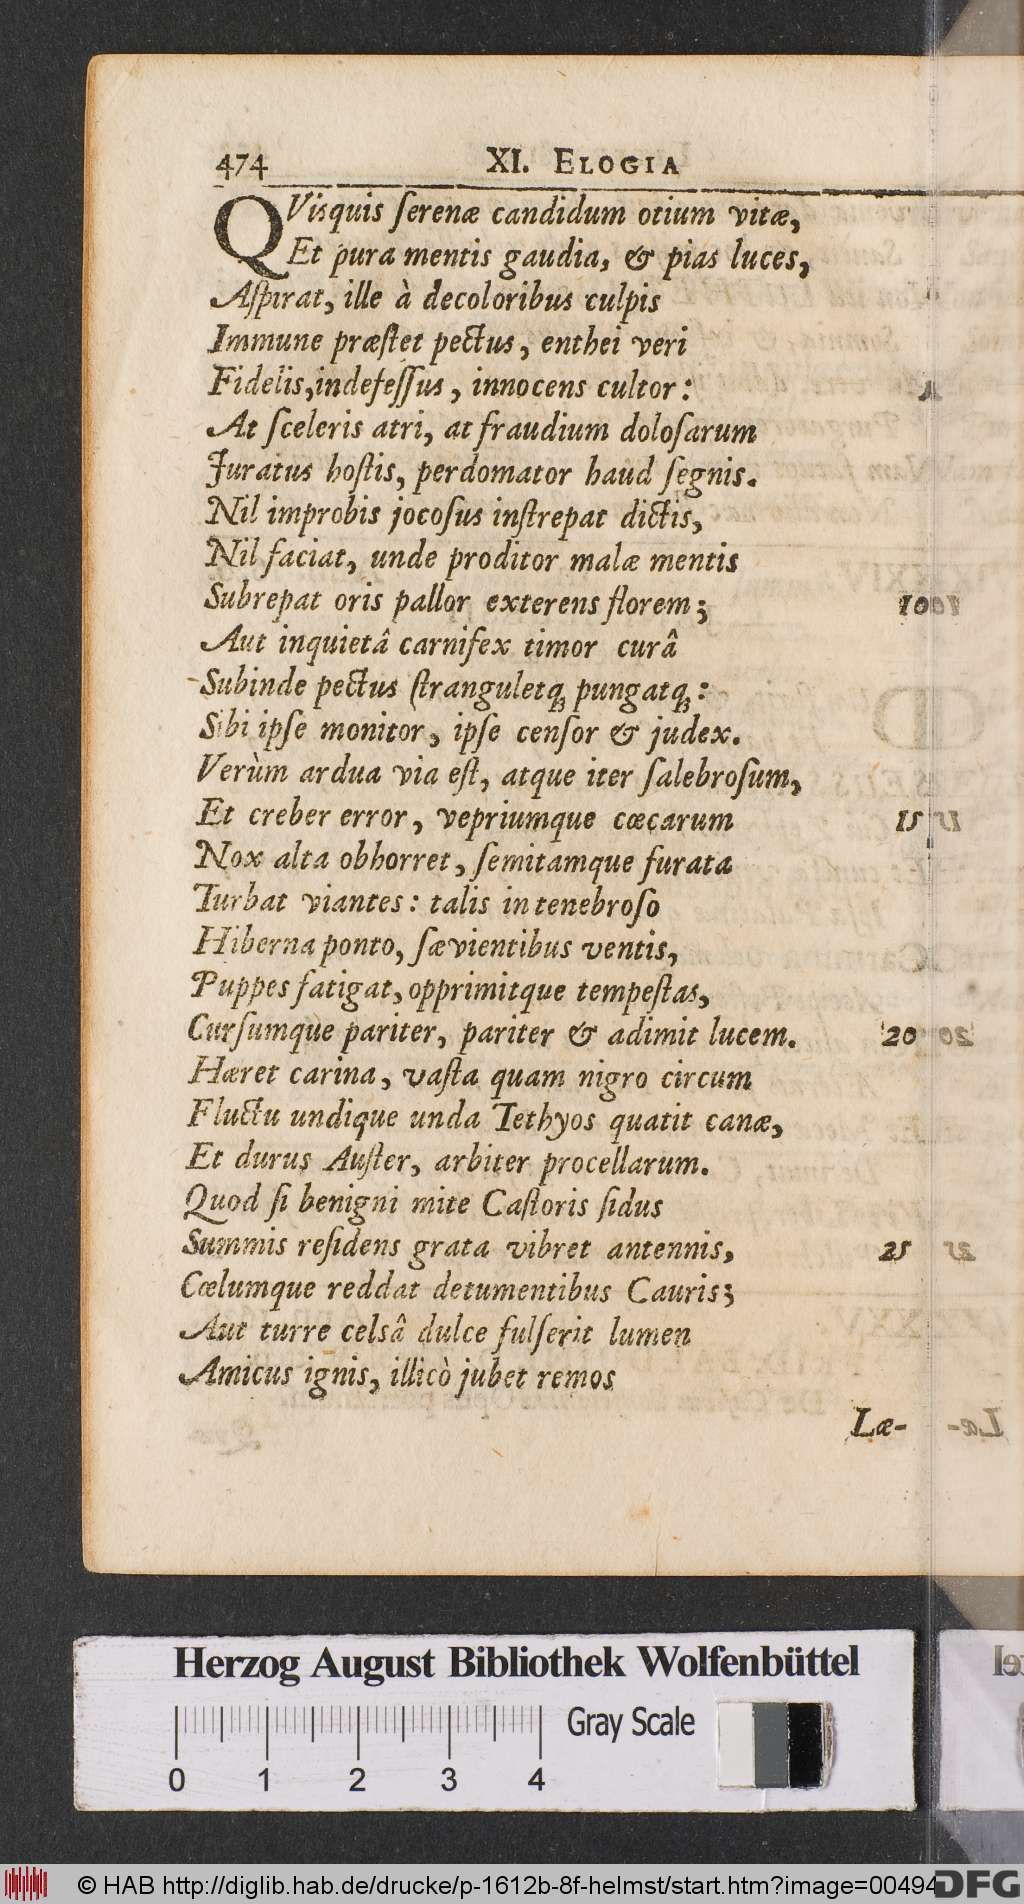 474 XI. ELOGIA
QVisquis ſerenæ candidum otium vitæ,
Et pura mentis gaudia, & pias luces,
Aſpirat, ille à decoloribus culpis
Immune præſtet pectus, enthei veri
Fidelis, indefeſſus, innocens cultor:
At ſceleris atri, at fraudium doloſarum
Juratus hoſtis, perdomator haud ſegnis.
Nil improbis jocoſus inſtrepat dictis,
Nil faciat, unde proditor malæ mentis
Subrepat oris pallor exterens florem; 10
Aut inquietâ carnifex timor curâ
Subinde pectus ſtranguletq́; pungatq́;:
Sibi ipſe monitor, ipſe cenſor & judex.
Verùm ardua via eſt, atque iter ſalebroſum,
Et creber error, vepriumque cœcarum 15
Nox alta obhorret, ſemitamque furata
Turbat viantes: talis in tenebroſo
Hiberna ponto, ſævientibus ventis,
Puppes fatigat, opprimitque tempeſtas,
Curſumque pariter, pariter & adimit lucem. 20
Hæret carina, vaſta quam nigro circum
Fluctu undique unda Tethyos quatit canæ,
Et durus Auſter, arbiter procellarum.
Quod ſi benigni mite Caſtoris ſidus
Summis reſidens grata vibret antennis, 25
Cœlumque reddat detumentibus Cauris;
Aut turre celsâ dulce fulſerit lumen
Amicus ignis, illicò jubet remos
Læ-
Herzog August Bibliothek Wolfenbüttel
Gray Scale
0 1 2 3 4
© HAB http://diglib.hab.de/drucke/p-1612b-8f-helmst/start.htm?image=00494
DFG